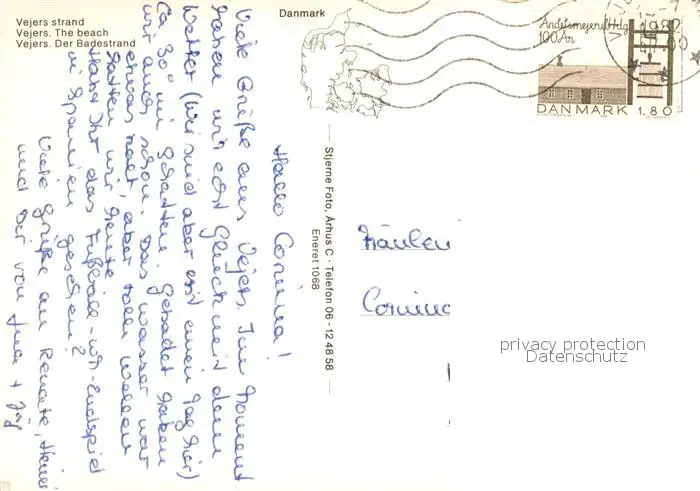 Vejers strand
Vejers. The beach
Vejers. Der Badestrand
Danmark
Andelsmejeriet Hjedding
100 År
DANMARK 1.80
1982
Hallo Corinna!
Viele Grüße aus Vejers. Im Moment
haben wir echt Glück mit dem
Wetter (wir sind aber erst einen Tag hier)
Ca 30° im Schatten. Gebadet haben
wir auch schon. Das Wasser war
etwas kalt, aber tolle Wellen
hatten wir heute
Habt Ihr das Fußball-WM-Endspiel
in Spanien gesehen?
Viele Grüße an Renate, Heiner
und Dir von + Jörg
Stjerne Foto, Århus C - Telefon 06 - 12 48 58
Eneret 1068
Fräulein
Corinna
privacy protection
Datenschutz